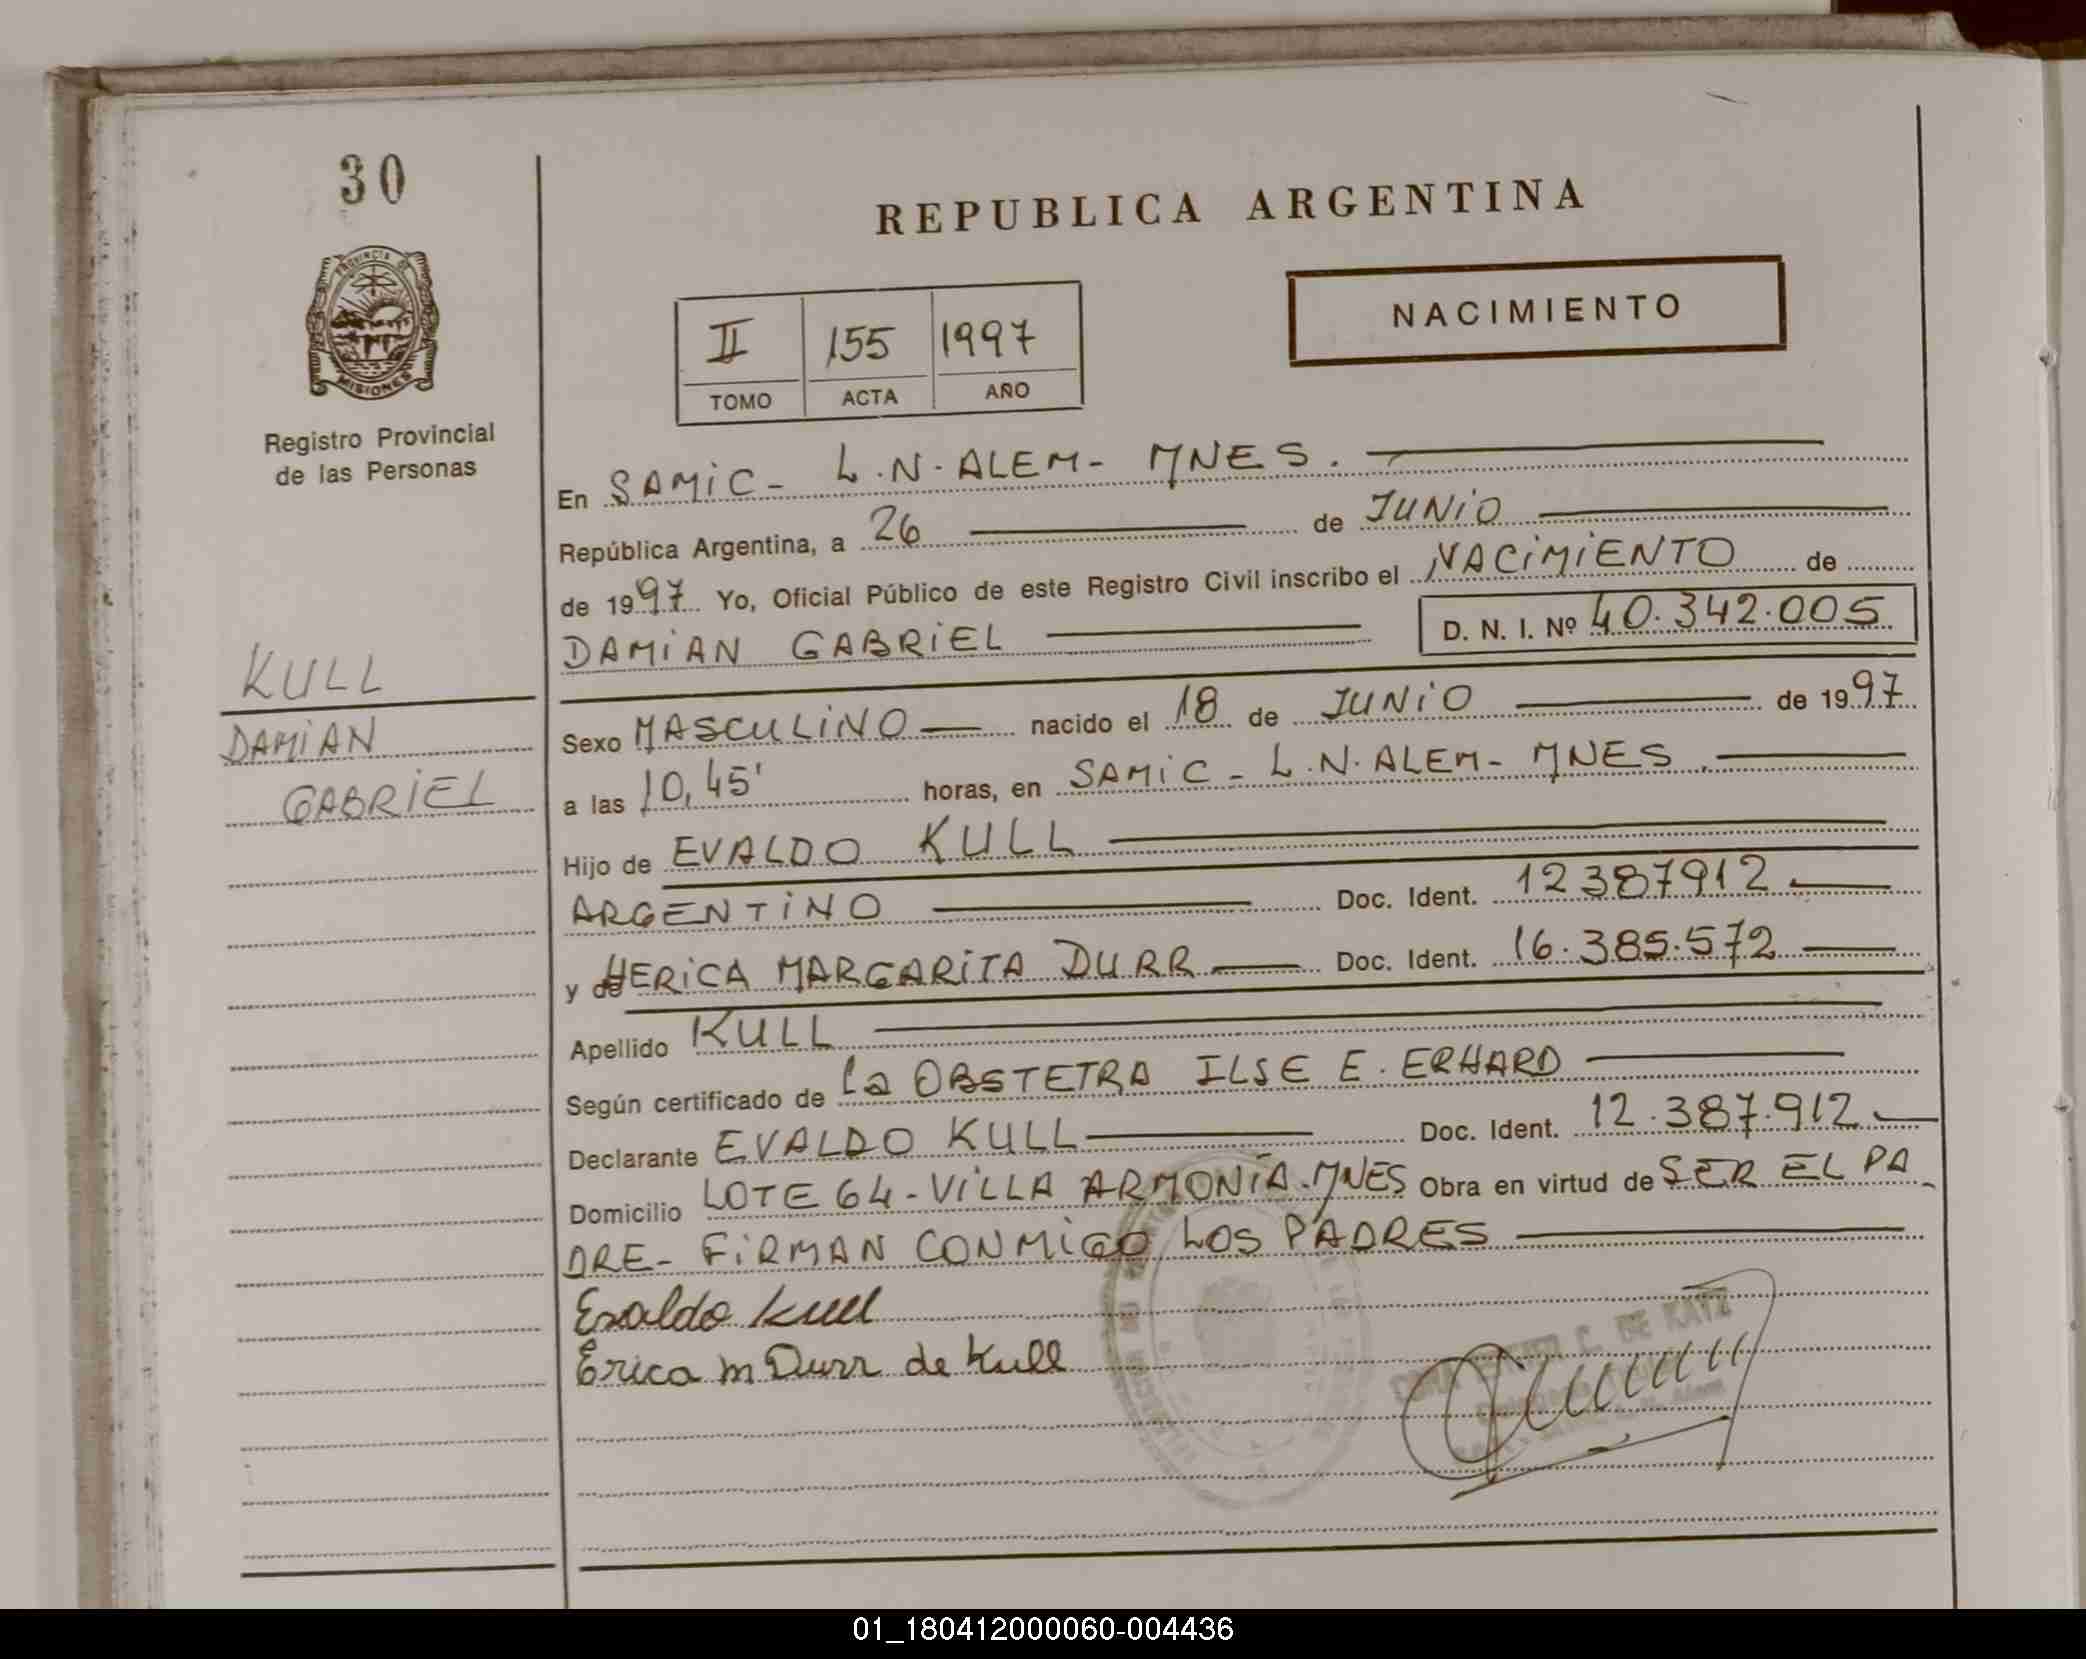 30
REPUBLICA ARGENTINA
PROVINCIA DE
MISIONES
Registro Provincial
de las Personas
NACIMIENTO
II 155 1997
TOMO ACTA AÑO
En SAMIC - L.N. ALEM - MNES.
República Argentina, a 26 de JUNIO
de 1997 Yo, Oficial Público de este Registro Civil inscribo el NACIMIENTO de
DAMIAN GABRIEL D. N. I. Nº 40.342.005
KULL
DAMIAN
GABRIEL
Sexo MASCULINO nacido el 18 de JUNIO de 1997
a las 10,45' horas, en SAMIC - L.N. ALEM - MNES.
Hijo de EVALDO KULL
ARGENTINO Doc. Ident. 12387912
y de HERICA MARGARITA DURR Doc. Ident. 16.385.572
Apellido KULL
Según certificado de la OBSTETRA ILSE E. ERHARD
Declarante EVALDO KULL Doc. Ident. 12.387.912
Domicilio LOTE 64 - VILLA ARMONÍA - MNES Obra en virtud de SER EL PA-
DRE - FIRMAN CONMIGO LOS PADRES
Evaldo Kull
Erica M Durr de Kull
C. DE KATZ
01_180412000060-004436